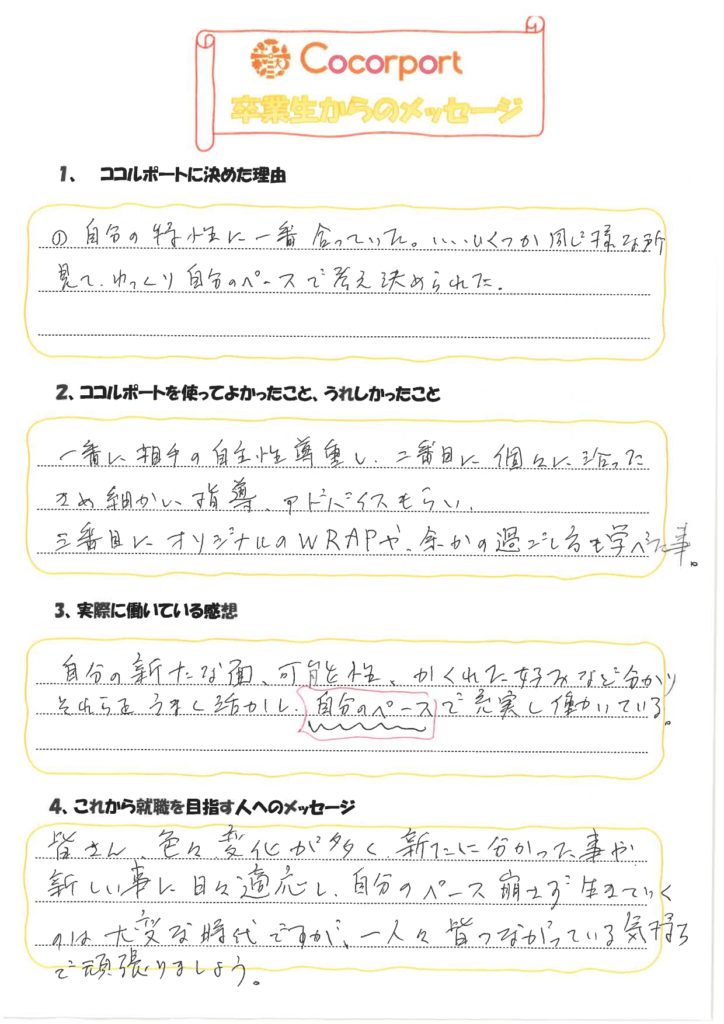 Cocorport
卒業生からのメッセージ
1、 ココルポートに決めた理由
① 自分の特性に一番合っていた。いくつか同じ様な所
見て、ゆっくり自分のペースで考え決められた。
2、ココルポートを使ってよかったこと、うれしかったこと
一番に相手の自主性尊重し、二番目に個々に沿った
きめ細かい指導、アドバイスもらい、
三番目にオリジナルのWRAPや、余かの過ごし方も学べた事。
3、実際に働いている感想
自分の新たな面、可能性、かくれた好みなど分かり
それらをうまく活かし、自分のペースで充実し働いている。
4、これから就職を目指す人へのメッセージ
皆さん、色々変化が多く、新たに分かった事や
新しい事に日々適応し、自分のペース崩さず生きていく
のは大変な時代ですが、一人々皆つながっている気持ち
で頑張りましょう。